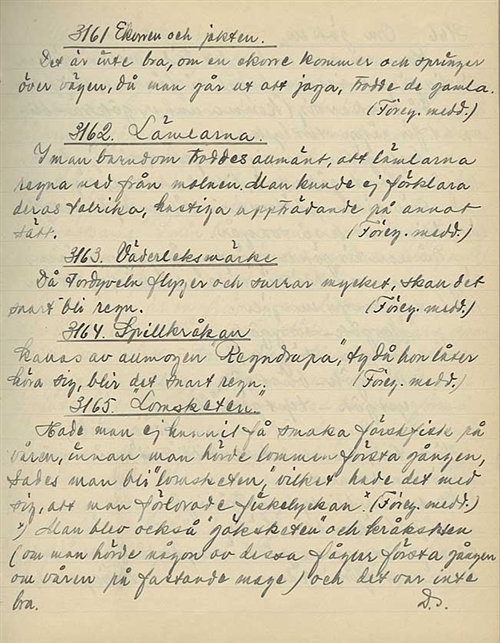 3161 Ekorren och jakten.
Det är inte bra, om en ekorre kommer och springer
över vägen, då man går ut att jaga, trodde de gamla.
(Förey. medd.)
3162. Lämlarna.
I man barndom troddes allmänt, att lämlarna
regna ned från molnen. Man kunde ej förklara
deras talrika, hastiga uppträdande på annat
sätt. (Förey. medd.)
3163. Väderleksmärke
Då tordyveln flyger och surrar mycket, skall det
snart bli regn. (Förey. medd.)
3164. Spillkråkan
kallas av allmogen "Regndrupa", ty då hon låter
höra sig, blir det snart regn. (Förey. medd.)
3165. "Lomsketen."
Hade man ej hunnit få smaka färsk fisk på
våren, innan man hörde lommen första gången,
sades man bli "lomsketen," vilket hade det med
sig, att man förlorade fiskelyckan.* (Förey. medd.)
*) Man blev också "göksketen" och kråksketen
(om man hörde någon av dessa fåglar första gången
om våren på fastande mage) och det var inte
bra. D.s.